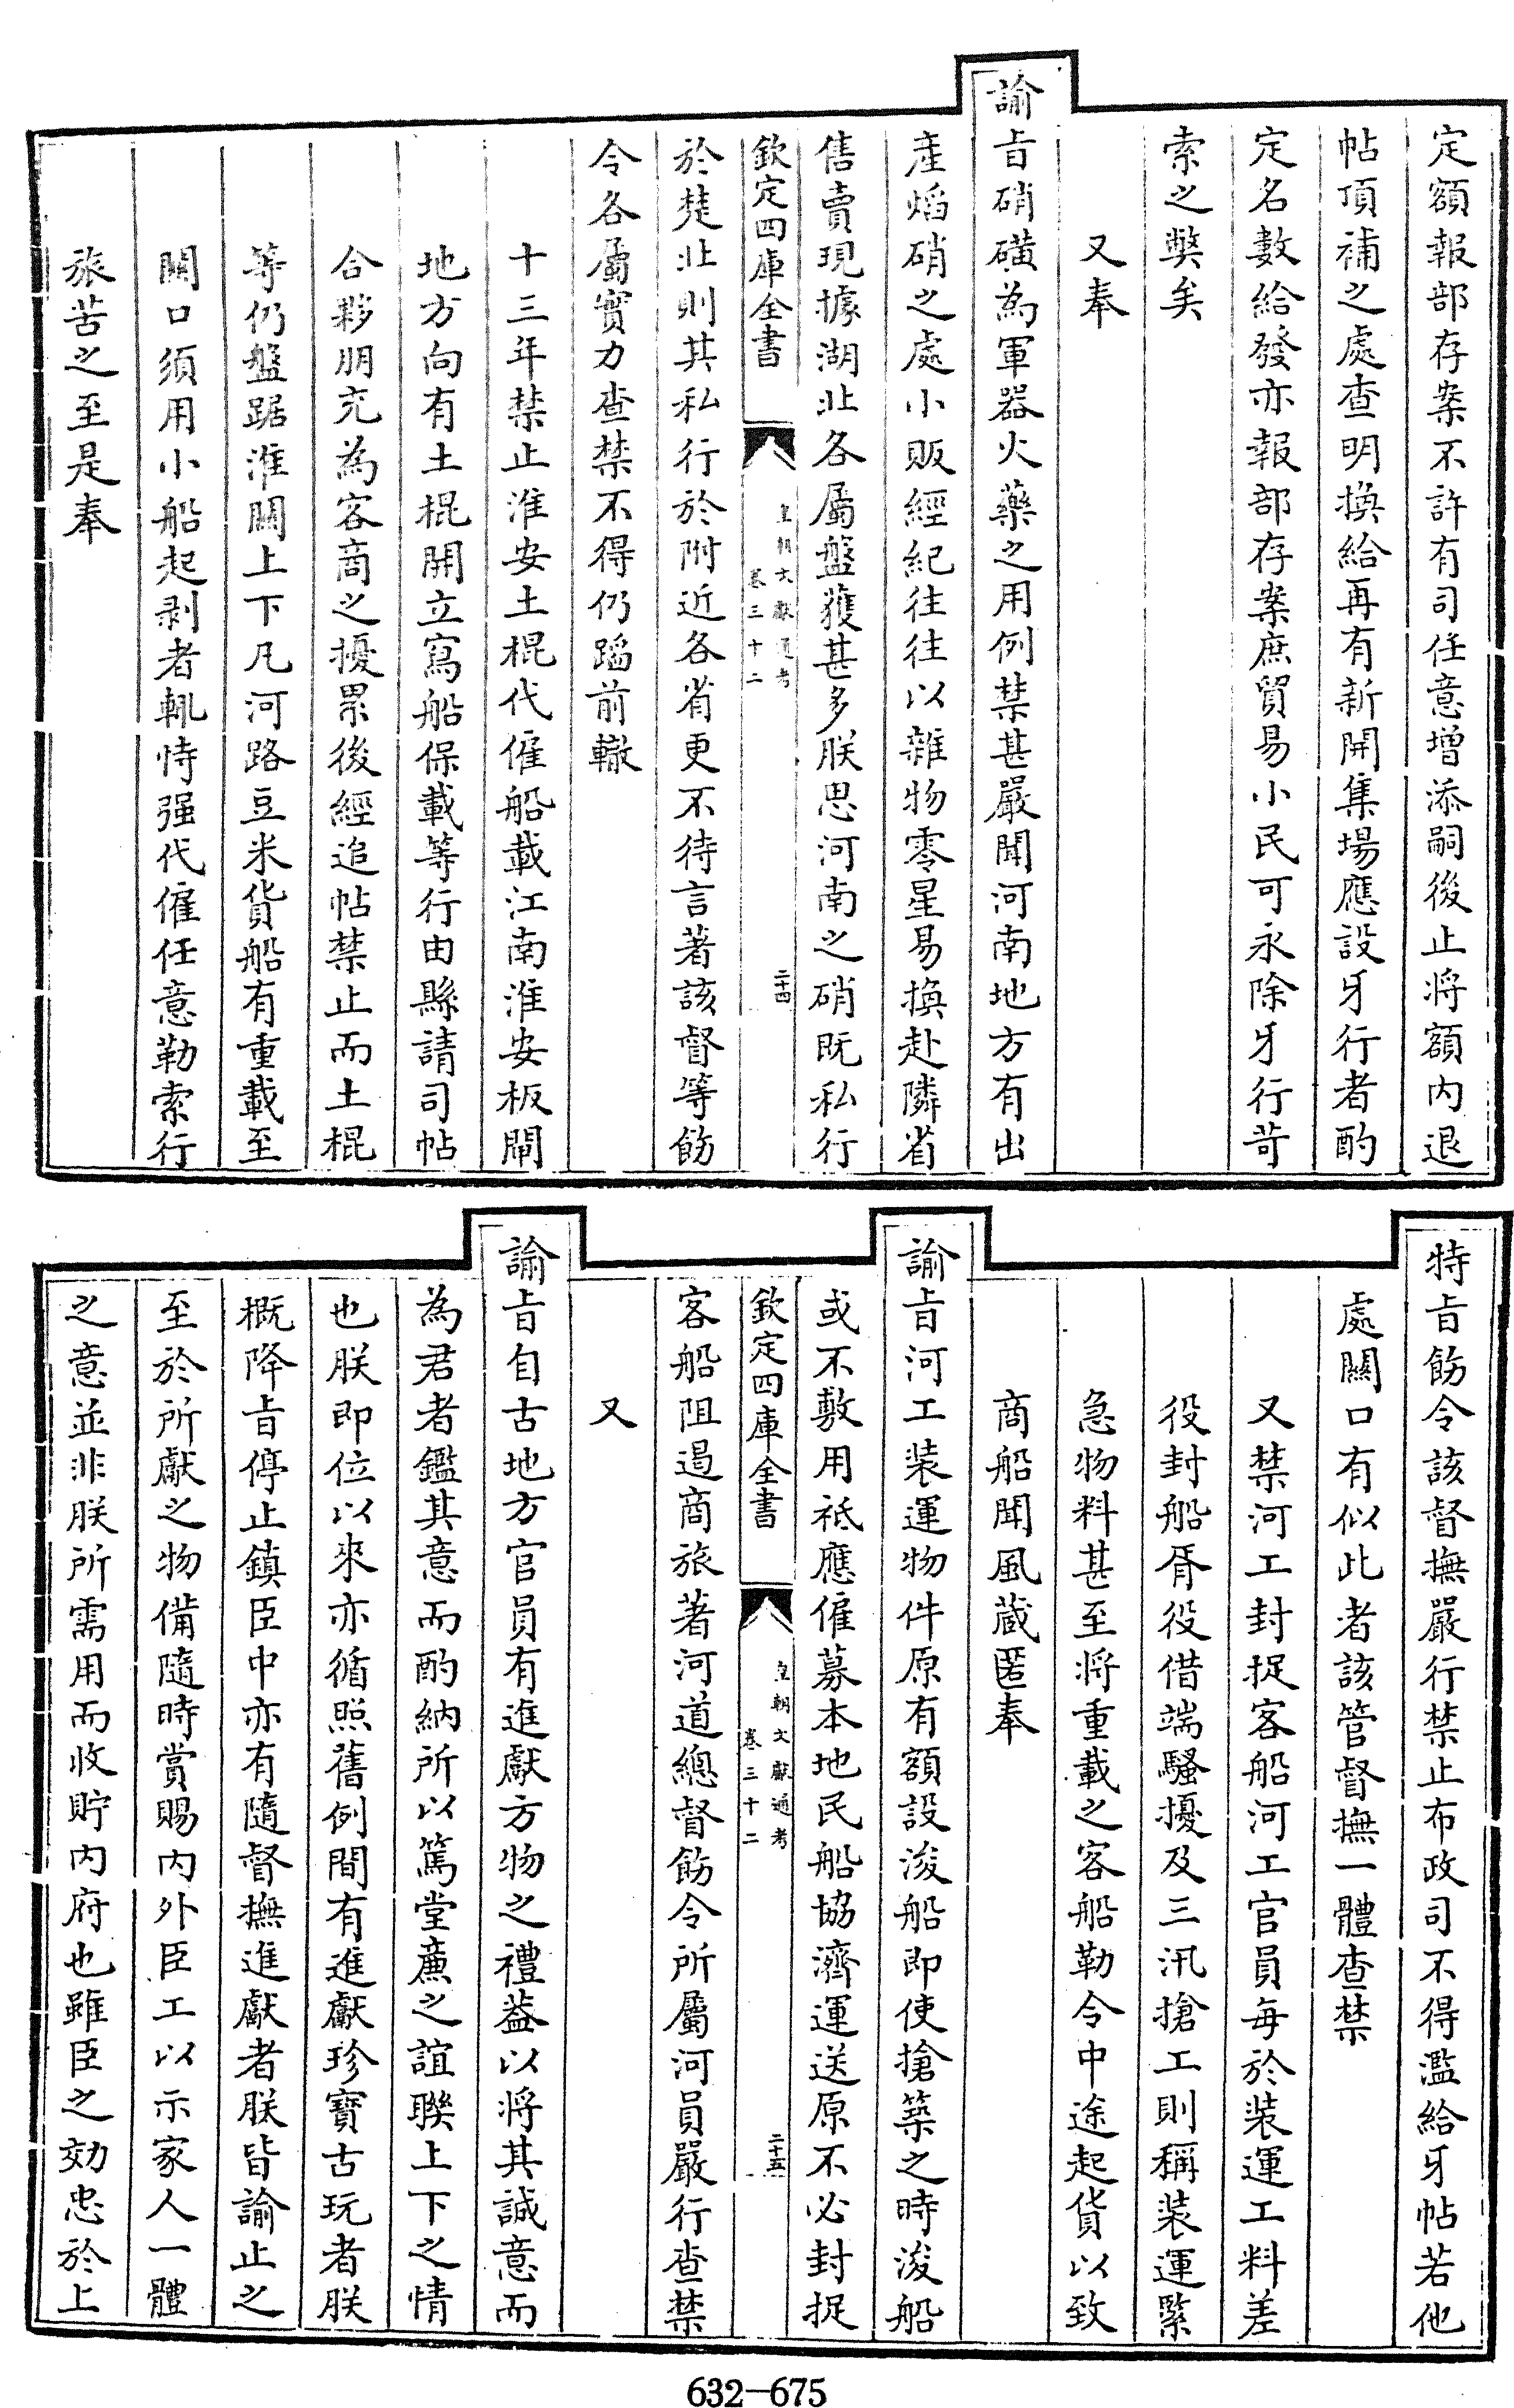 定額報部存案不許有司任意增添嗣後止將額内退
帖頂補之處查明換給再有新開集場應設牙行者酌
定名數給發亦報部存案庶貿易小民可永除牙行苛
索之弊矣
又奉
諭旨硝磺為軍器火藥之用例禁甚嚴聞河南地方有出
產焰硝之處小販經紀往往以雜物零星易換赴隣省
售賣現據湖北各屬盤獲甚多朕思河南之硝既私行
欽定四庫全書
皇朝文獻通考
卷三十二
二十四
於楚北則其私行於附近各省更不待言著該督等飭
令各屬實力查禁不得仍蹈前轍
十三年禁止淮安土棍代僱船載江南淮安板閘
地方向有土棍開立寫船保載等行由縣請司帖
合夥朋充為客商之擾累後經追帖禁止而土棍
等仍盤踞淮關上下凡河路豆米貨船有重載至
關口須用小船起剥者輒恃强代僱任意勒索行
旅苦之至是奉
特旨飭令該督撫嚴行禁止布政司不得濫給牙帖若他
處關口有似此者該管督撫一體查禁
又禁河工封捉客船河工官員每於装運工料差
役封船胥役借端騷擾及三汛搶工則稱装運緊
急物料甚至將重載之客船勒令中途起貨以致
商船聞風藏匿奉
諭旨河工装運物件原有額設浚船即使搶築之時浚船
或不敷用祗應僱募本地民船協濟運送原不必封捉
欽定四庫全書
皇朝文獻通考
卷三十二
二十五
客船阻遏商旅著河道總督飭令所屬河員嚴行查禁
又
諭旨自古地方官員有進獻方物之禮葢以將其誠意而
為君者鑑其意而酌納所以篤堂廉之誼聯上下之情
也朕即位以來亦循照舊例間有進獻珍寶古玩者朕
概降旨停止鎮臣中亦有隨督撫進獻者朕皆諭止之
至於所獻之物備隨時賞賜内外臣工以示家人一體
之意並非朕所需用而收貯内府也雖臣之効忠於上
632—675